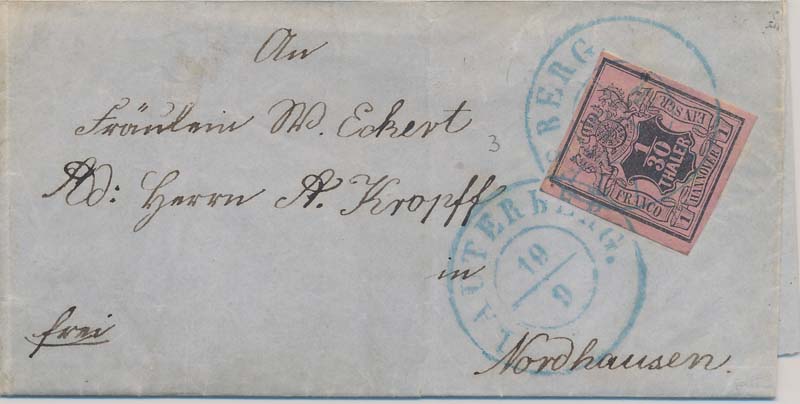 An
Fräulein W. Eckert
3
Ad: Herrn A. Kropff
in
Nordhausen.
frei
BERG
LAUTERBERG.
19
9
EIN SGR
1
30
THALER
HANNOVER
FRANCO
1
1